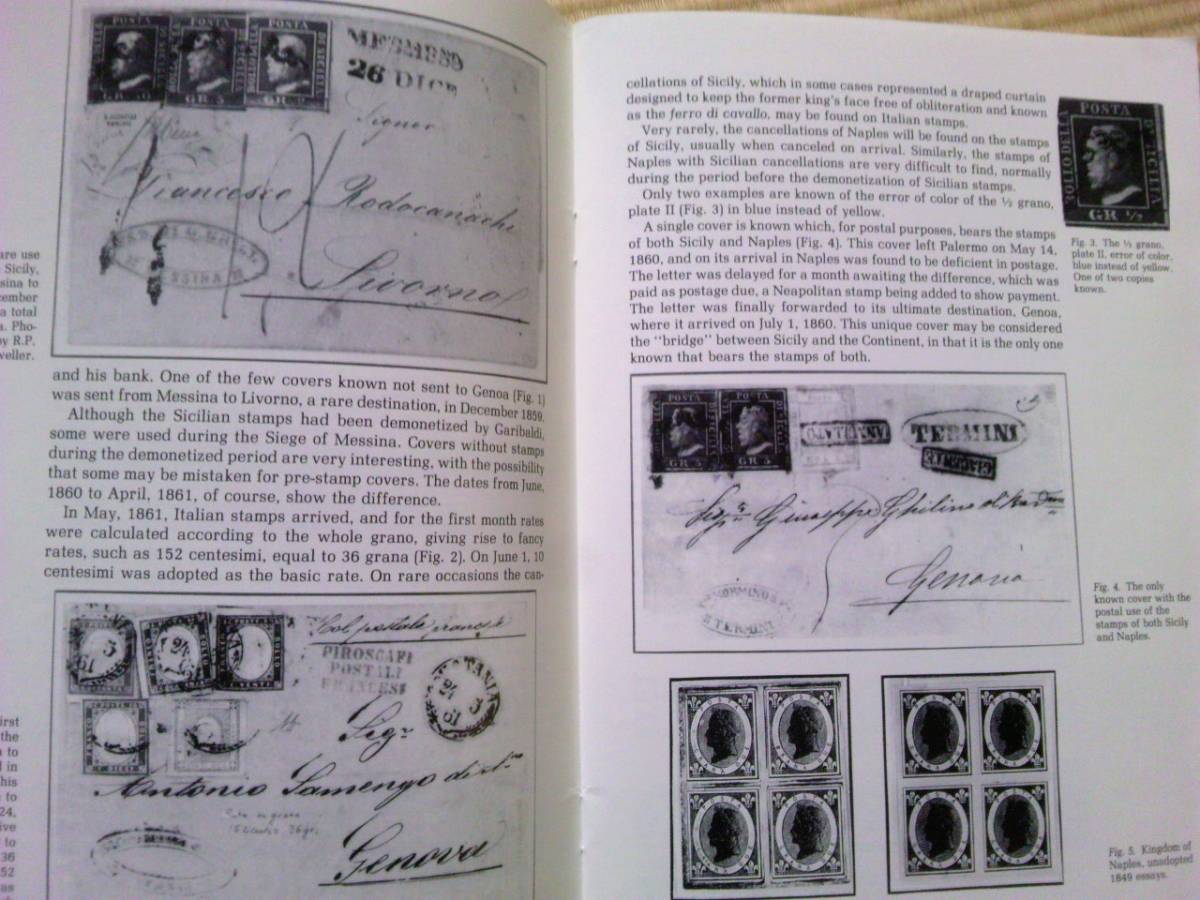 POSTA
POSTA
POSTA
GR 5
26 DICE
Signor
Francesco Rodocanachi
Livorno
are use
Sicily,
ssina to
cember
a total
a. Pho-
by R.P.
weller.
and his bank. One of the few covers known not sent to Genoa (Fig. 1)
was sent from Messina to Livorno, a rare destination, in December 1859.
Although the Sicilian stamps had been demonetized by Garibaldi,
some were used during the Siege of Messina. Covers without stamps
during the demonetized period are very interesting, with the possibility
that some may be mistaken for pre-stamp covers. The dates from June,
1860 to April, 1861, of course, show the difference.
In May, 1861, Italian stamps arrived, and for the first month rates
were calculated according to the whole grano, giving rise to fancy
rates, such as 152 centesimi, equal to 36 grana (Fig. 2). On June 1, 10
centesimi was adopted as the basic rate. On rare occasions the can-
PIROSCAFI
POSTALI
FRANCESI
CATANIA
24
61
Sigr
Antonio Samengo
Genova
irst
the
to
in
his
to
24,
ive
to
36
52
as
cellations of Sicily, which in some cases represented a draped curtain
designed to keep the former king's face free of obliteration and known
as the ferro di cavallo, may be found on Italian stamps.
Very rarely, the cancellations of Naples will be found on the stamps
of Sicily, usually when canceled on arrival. Similarly, the stamps of
Naples with Sicilian cancellations are very difficult to find, normally
during the period before the demonetization of Sicilian stamps.
Only two examples are known of the error of color of the ½ grano,
plate II (Fig. 3) in blue instead of yellow.
A single cover is known which, for postal purposes, bears the stamps
of both Sicily and Naples (Fig. 4). This cover left Palermo on May 14,
1860, and on its arrival in Naples was found to be deficient in postage.
The letter was delayed for a month awaiting the difference, which was
paid as postage due, a Neapolitan stamp being added to show payment.
The letter was finally forwarded to its ultimate destination, Genoa,
where it arrived on July 1, 1860. This unique cover may be considered
the "bridge" between Sicily and the Continent, in that it is the only one
known that bears the stamps of both.
POSTA
BOLLO DELLA
DI SICILIA
GR ½
Fig. 3. The ½ grano,
plate II, error of color,
blue instead of yellow.
One of two copies
known.
POSTA
POSTA
GR 5
GR 5
ANNULLATO
TERMINI
Genova
TERMINI
Fig. 4. The only
known cover with the
postal use of the
stamps of both Sicily
and Naples.
Fig. 5. Kingdom of
Naples, unadopted
1849 essays.